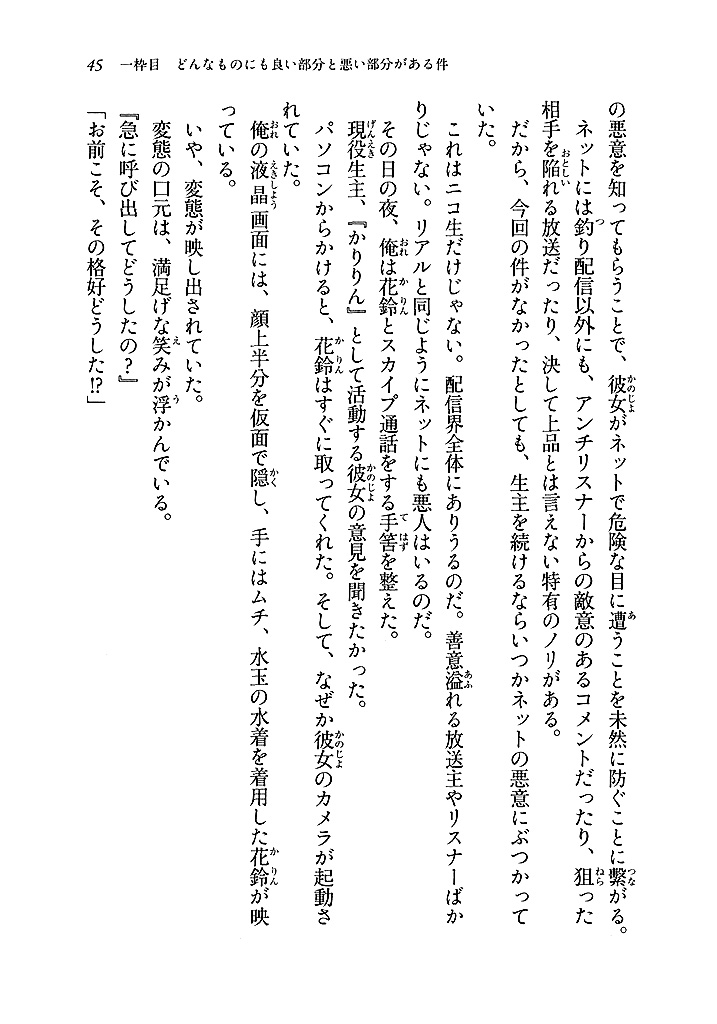 45　一枠目　どんなものにも良い部分と悪い部分がある件
の悪意を知ってもらうことで、彼女がネットで危険な目に遭うことを未然に防ぐことに繋がる。
ネットには釣り配信以外にも、アンチリスナーからの敵意のあるコメントだったり、狙った
相手を陥れる放送だったり、決して上品とは言えない特有のノリがある。
だから、今回の件がなかったとしても、生主を続けるならいつかネットの悪意にぶつかって
いた。
これはニコ生だけじゃない。配信界全体にありうるのだ。善意溢れる放送主やリスナーばか
りじゃない。リアルと同じようにネットにも悪人はいるのだ。
その日の夜、俺は花鈴とスカイプ通話をする手筈を整えた。
現役生主、『かりりん』として活動する彼女の意見を聞きたかった。
パソコンからかけると、花鈴はすぐに取ってくれた。そして、なぜか彼女のカメラが起動さ
れていた。
俺の液晶画面には、顔上半分を仮面で隠し、手にはムチ、水玉の水着を着用した花鈴が映
っている。
いや、変態が映し出されていた。
変態の口元は、満足げな笑みが浮かんでいる。
『急に呼び出してどうしたの？』
「お前こそ、その格好どうした!?」